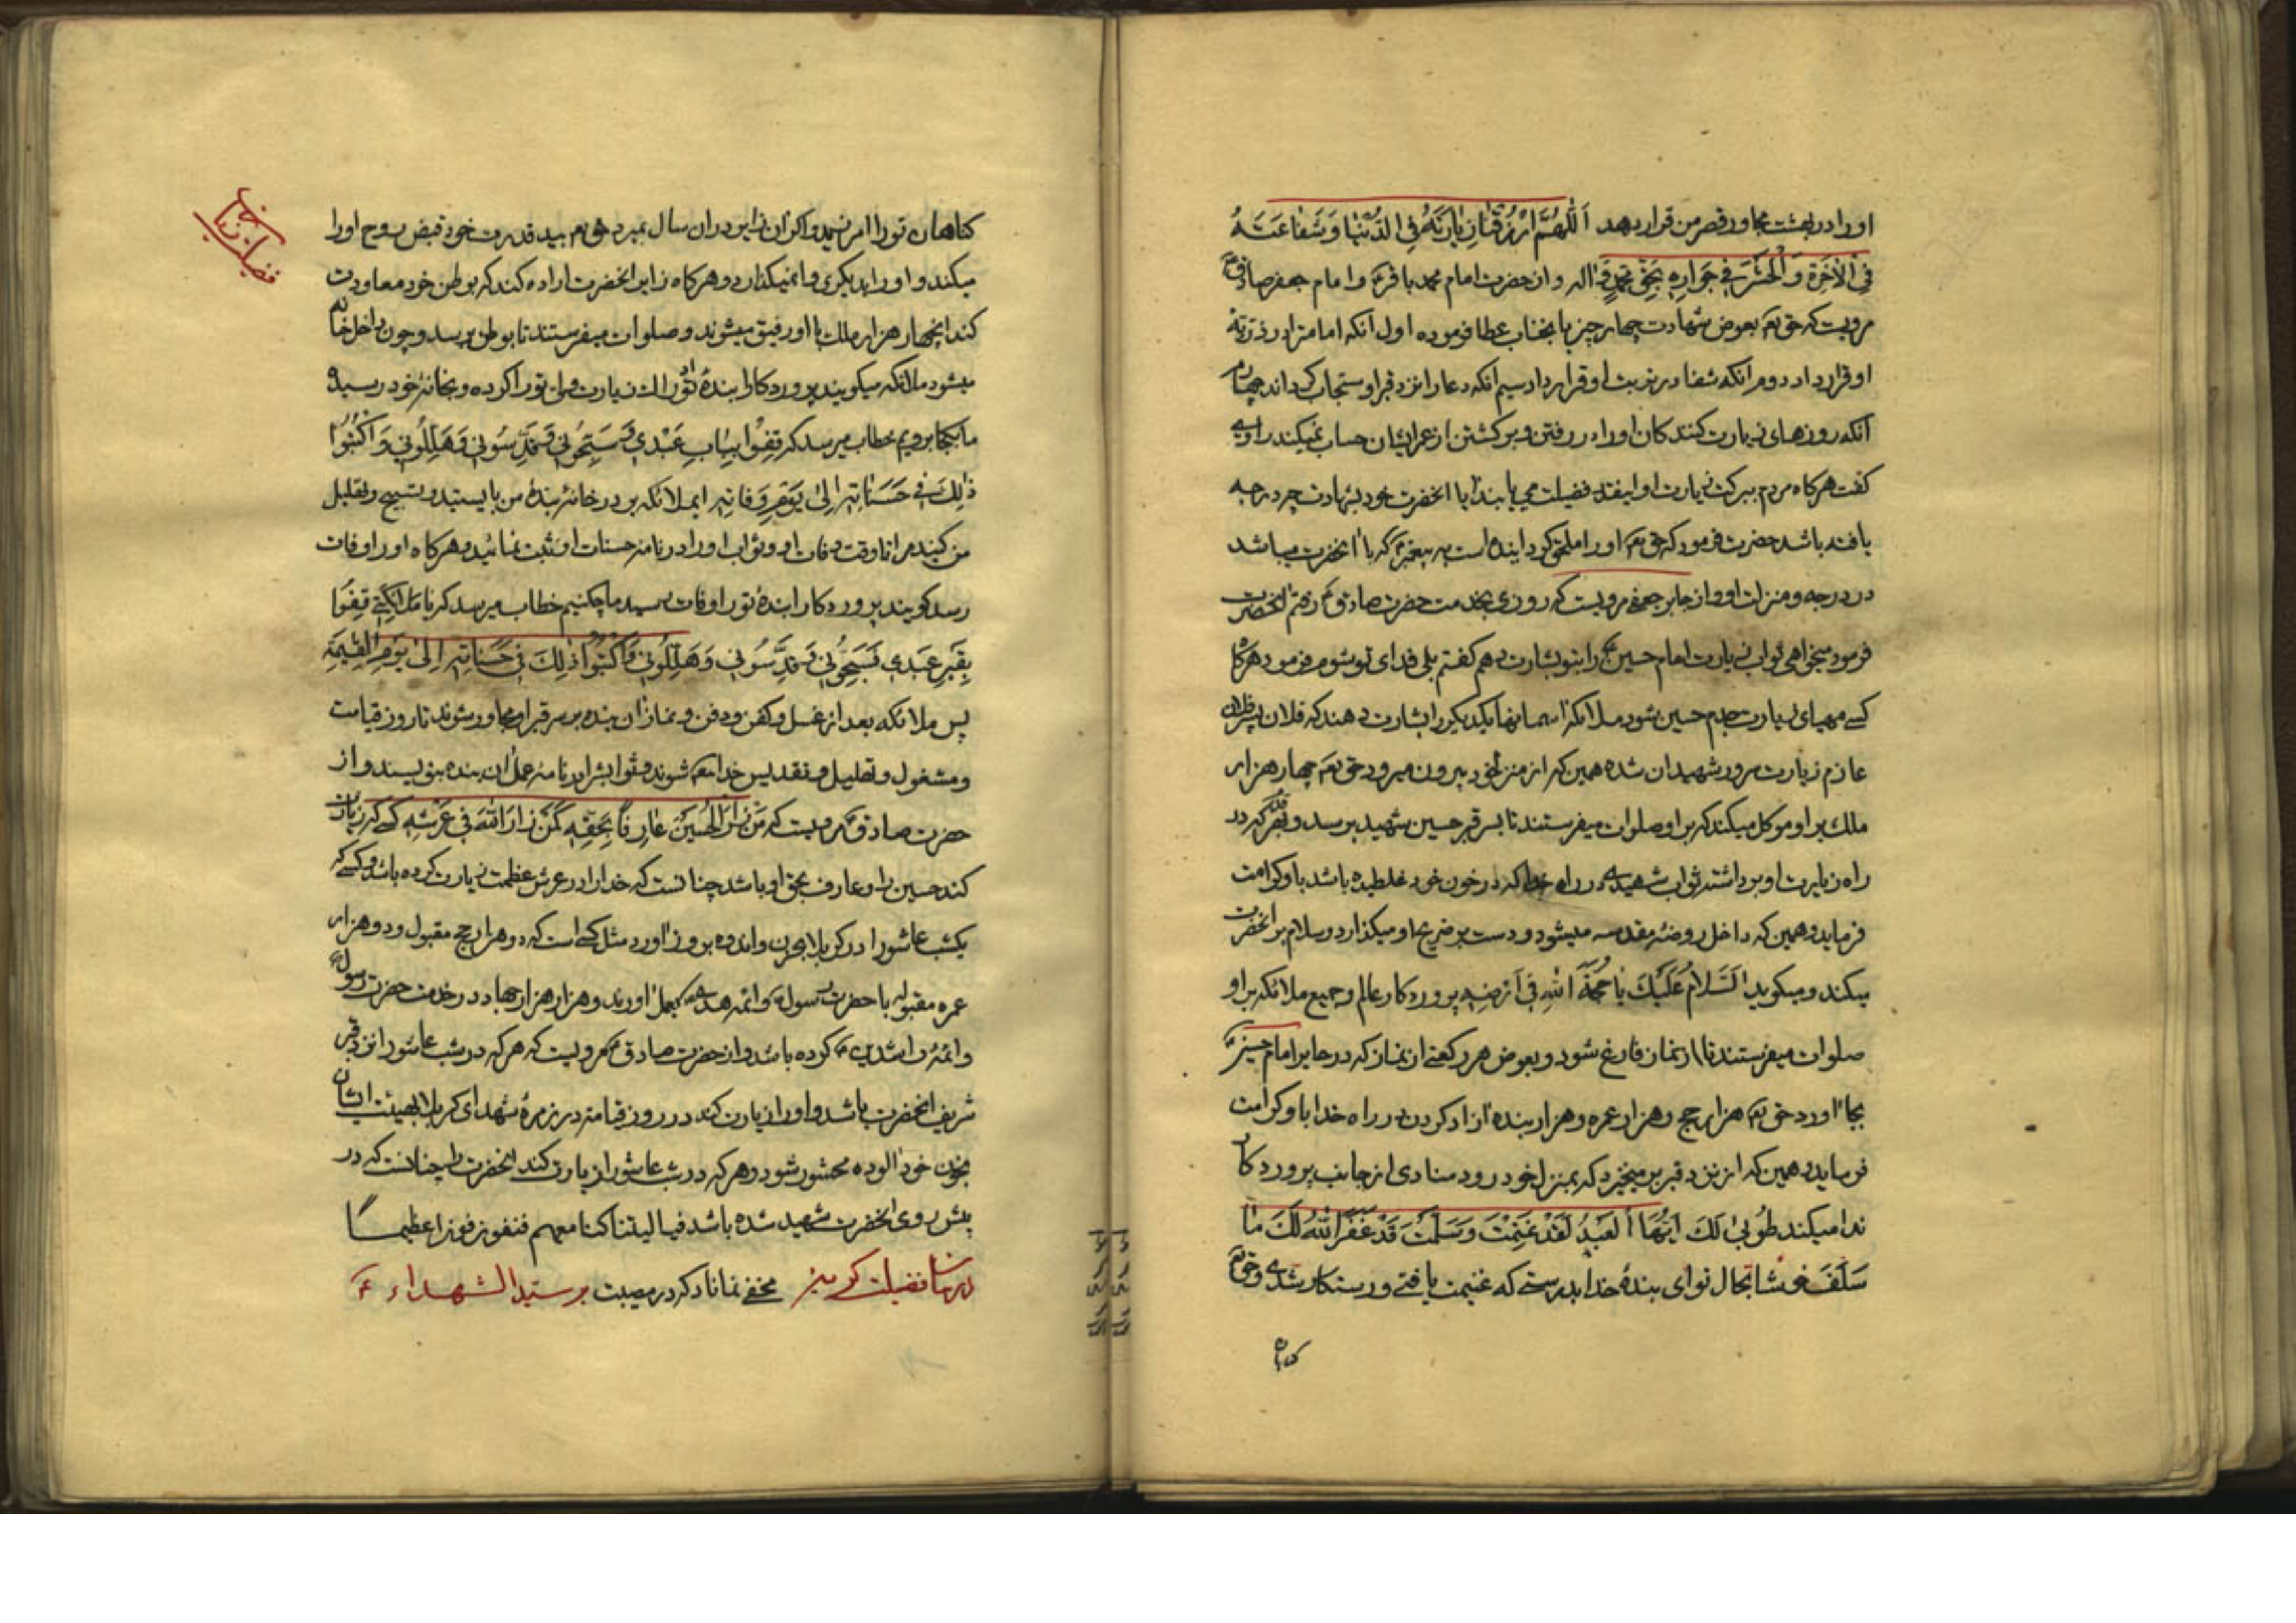 اورا در بهشت مجاور قصر من قرار دهد اَللّهُمَّ ارْزُقْنا زِیارَتَهُ فِی الدُّنْیا وَشَفاعَتَهُ
فِی الْاخِرَةِ وَالْحَشْرَ فِی جَوارِهِ بِحَقِّ مُحَمَّدٍ وَ اله و از حضرت امام محمد باقر ع و امام جعفر صادق ع
مرویست که حق تعم بعوض شهادت چهار چیز بانجناب عطا فرموده اول آنکه امامت را در ذریّهٔ
او قرار داد دوم انکه شفا در تربت او قرار داد سیم انکه دعا را نزد قبر او مستجاب کرداند چهارم
آنکه روزهای زیارت کنندکان او را در رفتن و برکشتن از عمر ایشان حساب نمیکند راوی
کفت هرکاه مردم ببرکت زیارت او اینقدر فضیلت می یابند ایا انحضرت خود بشهادت چه درجه
یافته باشد حضرت فرمود که حق تعم او را ملحق کردانیده است به پیغمبر ص که با انحضرت میباشد
در درجه و منزلت او و از جابر جعفی مرویست که روزی بخدمت حضرت صادق ع رفتم انحضرت
فرمود میخواهی ثواب زیارت امام حسین ع را بتو بشارت دهم کفتم بلی فدای تو شوم فرمود هرکاه
کسی مهیای زیارت جدم حسین شود ملائکه اسمانها یکدیکر را بشارت دهند که فلان پسر فلان
عازم زیارت سرور شهیدان شده همین که از منزل خود بیرون میرود حق تعم چهار هزار
ملک بر او موکل میکند که بر او صلوات میفرستند تا بسر قبر حسین شهید برسد و بهر قدم که در
راه زیارت او برداشته ثواب شهیدی در راه خدا که در خون خود غلطیده باشد باو کرامت
فرماید و همین که داخل روضهٔ مقدسه میشود و دست بر ضریح او میکذارد و سلام بر انحضرت
میکند و میکوید اَلسَّلامُ عَلَیْكَ یا حُجَّةَ اللّهِ فِی اَرْضِهِ پروردکار عالم و جمیع ملائکه بر او
صلوات میفرستند تا از نماز فارغ شود و بعوض هر رکعتی از نماز که در حایر امام حسین ع
بجا اورد حق تعم هزار حج و هزار عمره و هزار بنده ازاد کردن در راه خدا باو کرامت
فرماید و همین که از نزد قبر بر میخیزد که بمنزل خود رود منادی از جانب پروردکار
ندا میکند طُوبی لَكَ اَیُّهَا الْعَبْدُ لَقَدْ غَنِمْتَ وَسَلِمْتَ قَدْ غَفَرَ اللّهُ لَكَ ما
سَلَفَ خوشا بحال تو ای بندهٔ خدا بدرستی که غنیمت یافتی و رستکار شدی و حق تعم
کناهان تو را امرزید و اکر ان زایر در ان سال بمیرد حق تعم بید قدرت خود قبض روح او را
میکند و او را بدیکری وا نمیکذارد و هرکاه زایر انحضرت اراده کند که بوطن خود معاودت
کند انچهار هزار ملک با او رفیق میشوند و صلوات میفرستند تا بوطن برسد و چون داخل خانه
میشود ملائکه میکویند پروردکارا بندهٔ تو زیارت ولی تو را کرده و بخانهٔ خود رسید
ما بکجا برویم خطاب میرسد که قِفُوا بِبابِ عَبْدِی فَسَبِّحُونِی وَقَدِّسُونِی وَهَلِّلُونِی وَاکْتُبُوا
ذلِكَ فِی حَسَناتِهِ اِلی یَوْمِ وَفاتِهِ ایملائکه بر در خانهٔ بندهٔ من بایستید و تسبیح و تهلیل
من کنید مرا تا وقت وفات او و ثواب او را در نامهٔ حسنات او ثبت نمائید و هرکاه او را وفات
رسد کویند پروردکارا بندهٔ تو را وفات رسید ما چکنیم خطاب میرسد که یا مَلائِکَتِی قِفُوا
بِقَبْرِ عَبْدِی فَسَبِّحُونِی وَقَدِّسُونِی وَهَلِّلُونِی وَاکْتُبُوا ذلِكَ فِی حَسَناتِهِ اِلی یَوْمِ الْقِیمَةِ
پس ملائکه بعد از غسل و کفن و دفن و نماز ان بنده بر سر قبر او مجاور شوند تا روز قیامت
و مشغول و تهلیل و تقدیس خدا تعم شوند و ثوابش را در نامهٔ عمل ان بنده بنویسند و از
حضرت صادق ع مرویست که مَنْ زارَ الْحُسَیْنَ عارِفًا بِحَقِّهِ کَمَنْ زارَ اللّهَ فِی عَرْشِهِ کسی که زیارت
کند حسین را و عارف بحق او باشد چنانست که خدا را در عرش عظمت زیارت کرده باشد و کسی که
یکشب عاشورا در کربلا بحزن و اندوه بروز اورد مثل کسی است که دو هزار حج مقبول و دو هزار
عمره مقبوله با حضرت رسول ص و ائمه هدی بعمل اورند و هزار هزار جهاد در خدمت حضرت رسول ص
و ائمهٔ راشدین ع کرده باشد و از حضرت صادق ع مرویست که هرکه در شب عاشورا نزد قبر
شریف انحضرت باشد و او را زیارت کند در روز قیامت در زمرهٔ شهدای کربلا بهیئت ایشان
بخون خود الوده محشور شود و هرکه در شب عاشورا زیارت کند انحضرت را چنانست که در
پیش روی انحضرت شهید شده باشد فیا لیتنا کنا معهم فنفوز فوزا عظیما
در بیان فضیلت کریه مخفی نماناد که در مصیبت بر سید الشهداء ع